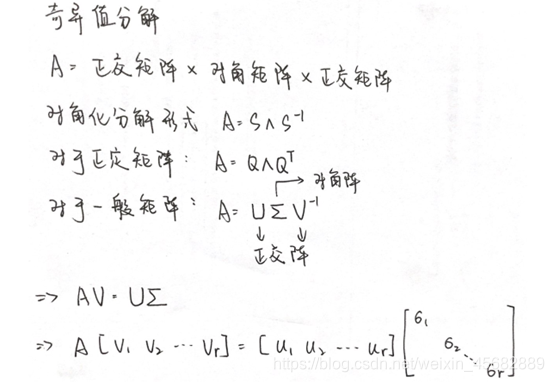 奇异值分解
A = 正交矩阵 × 对角矩阵 × 正交矩阵
对角化分解形式 A = SΛS⁻¹
对于正定矩阵: A = QΛQᵀ
→ 对角阵
对于一般矩阵: A = UΣV⁻¹
↓ ↓
正交阵
=> AV = UΣ
=> A [V₁ V₂ ⋯ Vᵣ] = [u₁ u₂ ⋯ uᵣ] [σ₁ σ₂ ⋱ σᵣ]
https://blog.csdn.net/weixin_45682889